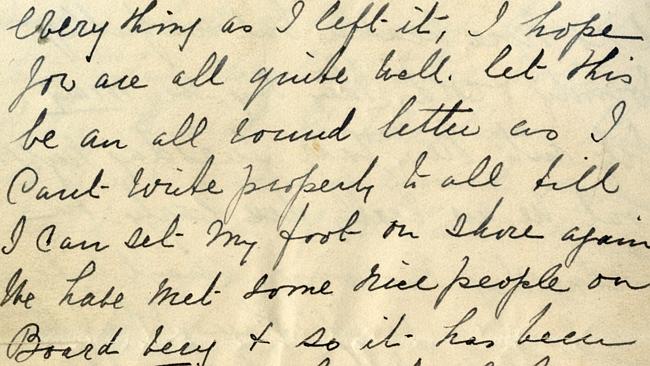 everything as I left it, I hope
you are all quite well. let this
be an all round letter as I
Cant write properly to all till
I can set my foot on shore again
We have met some nice people on
Board Very + so it has been